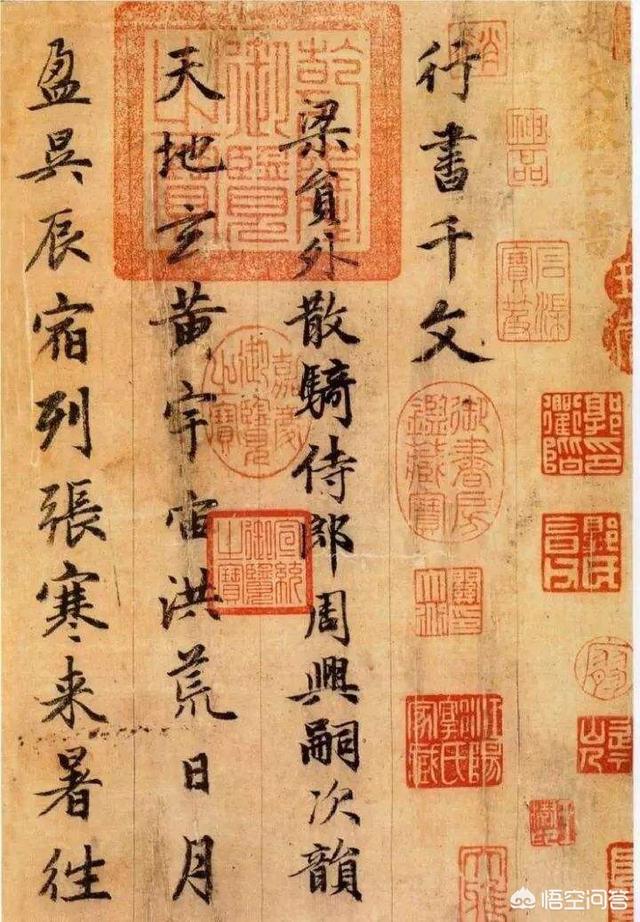 神品
石渠寶笈
行書千文
御書房鑑藏寶
梁貟外散騎侍郎周興嗣次韻
乾隆御覽之寶
嘉慶御覽之寶
宣統御覽之寶
天地玄黄宇宙洪荒日月
盈昃辰宿列張寒来暑往
悟空问答